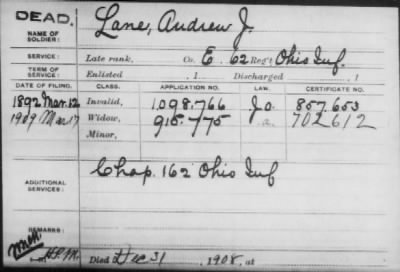 DEAD.
NAME OF SOLDIER: Lane, Andrew J.
SERVICE: Late rank, Co. E. 62 Reg't Ohio Inf.
TERM OF SERVICE: Enlisted , 1 Discharged , 1
DATE OF FILING. CLASS. APPLICATION NO. LAW. CERTIFICATE NO.
1892 Mar. 12 Invalid, 1.098.766 Jo. 857.653
1909 Mar 17 Widow, 915.775 a. 702612
Minor,
ADDITIONAL SERVICES: Chap. 162 Ohio Inf
REMARKS:
Died Dec 31 , 1908, at